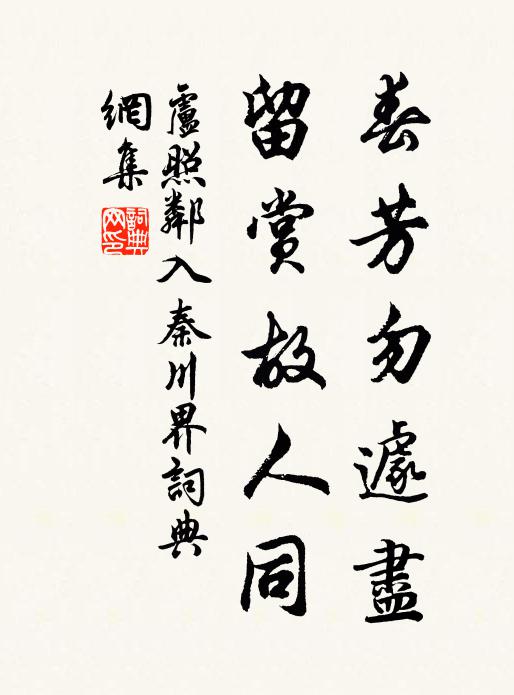 春芳勿遽盡
留賞故人同
盧照鄰入秦川界詞典
網集
詞典
网印